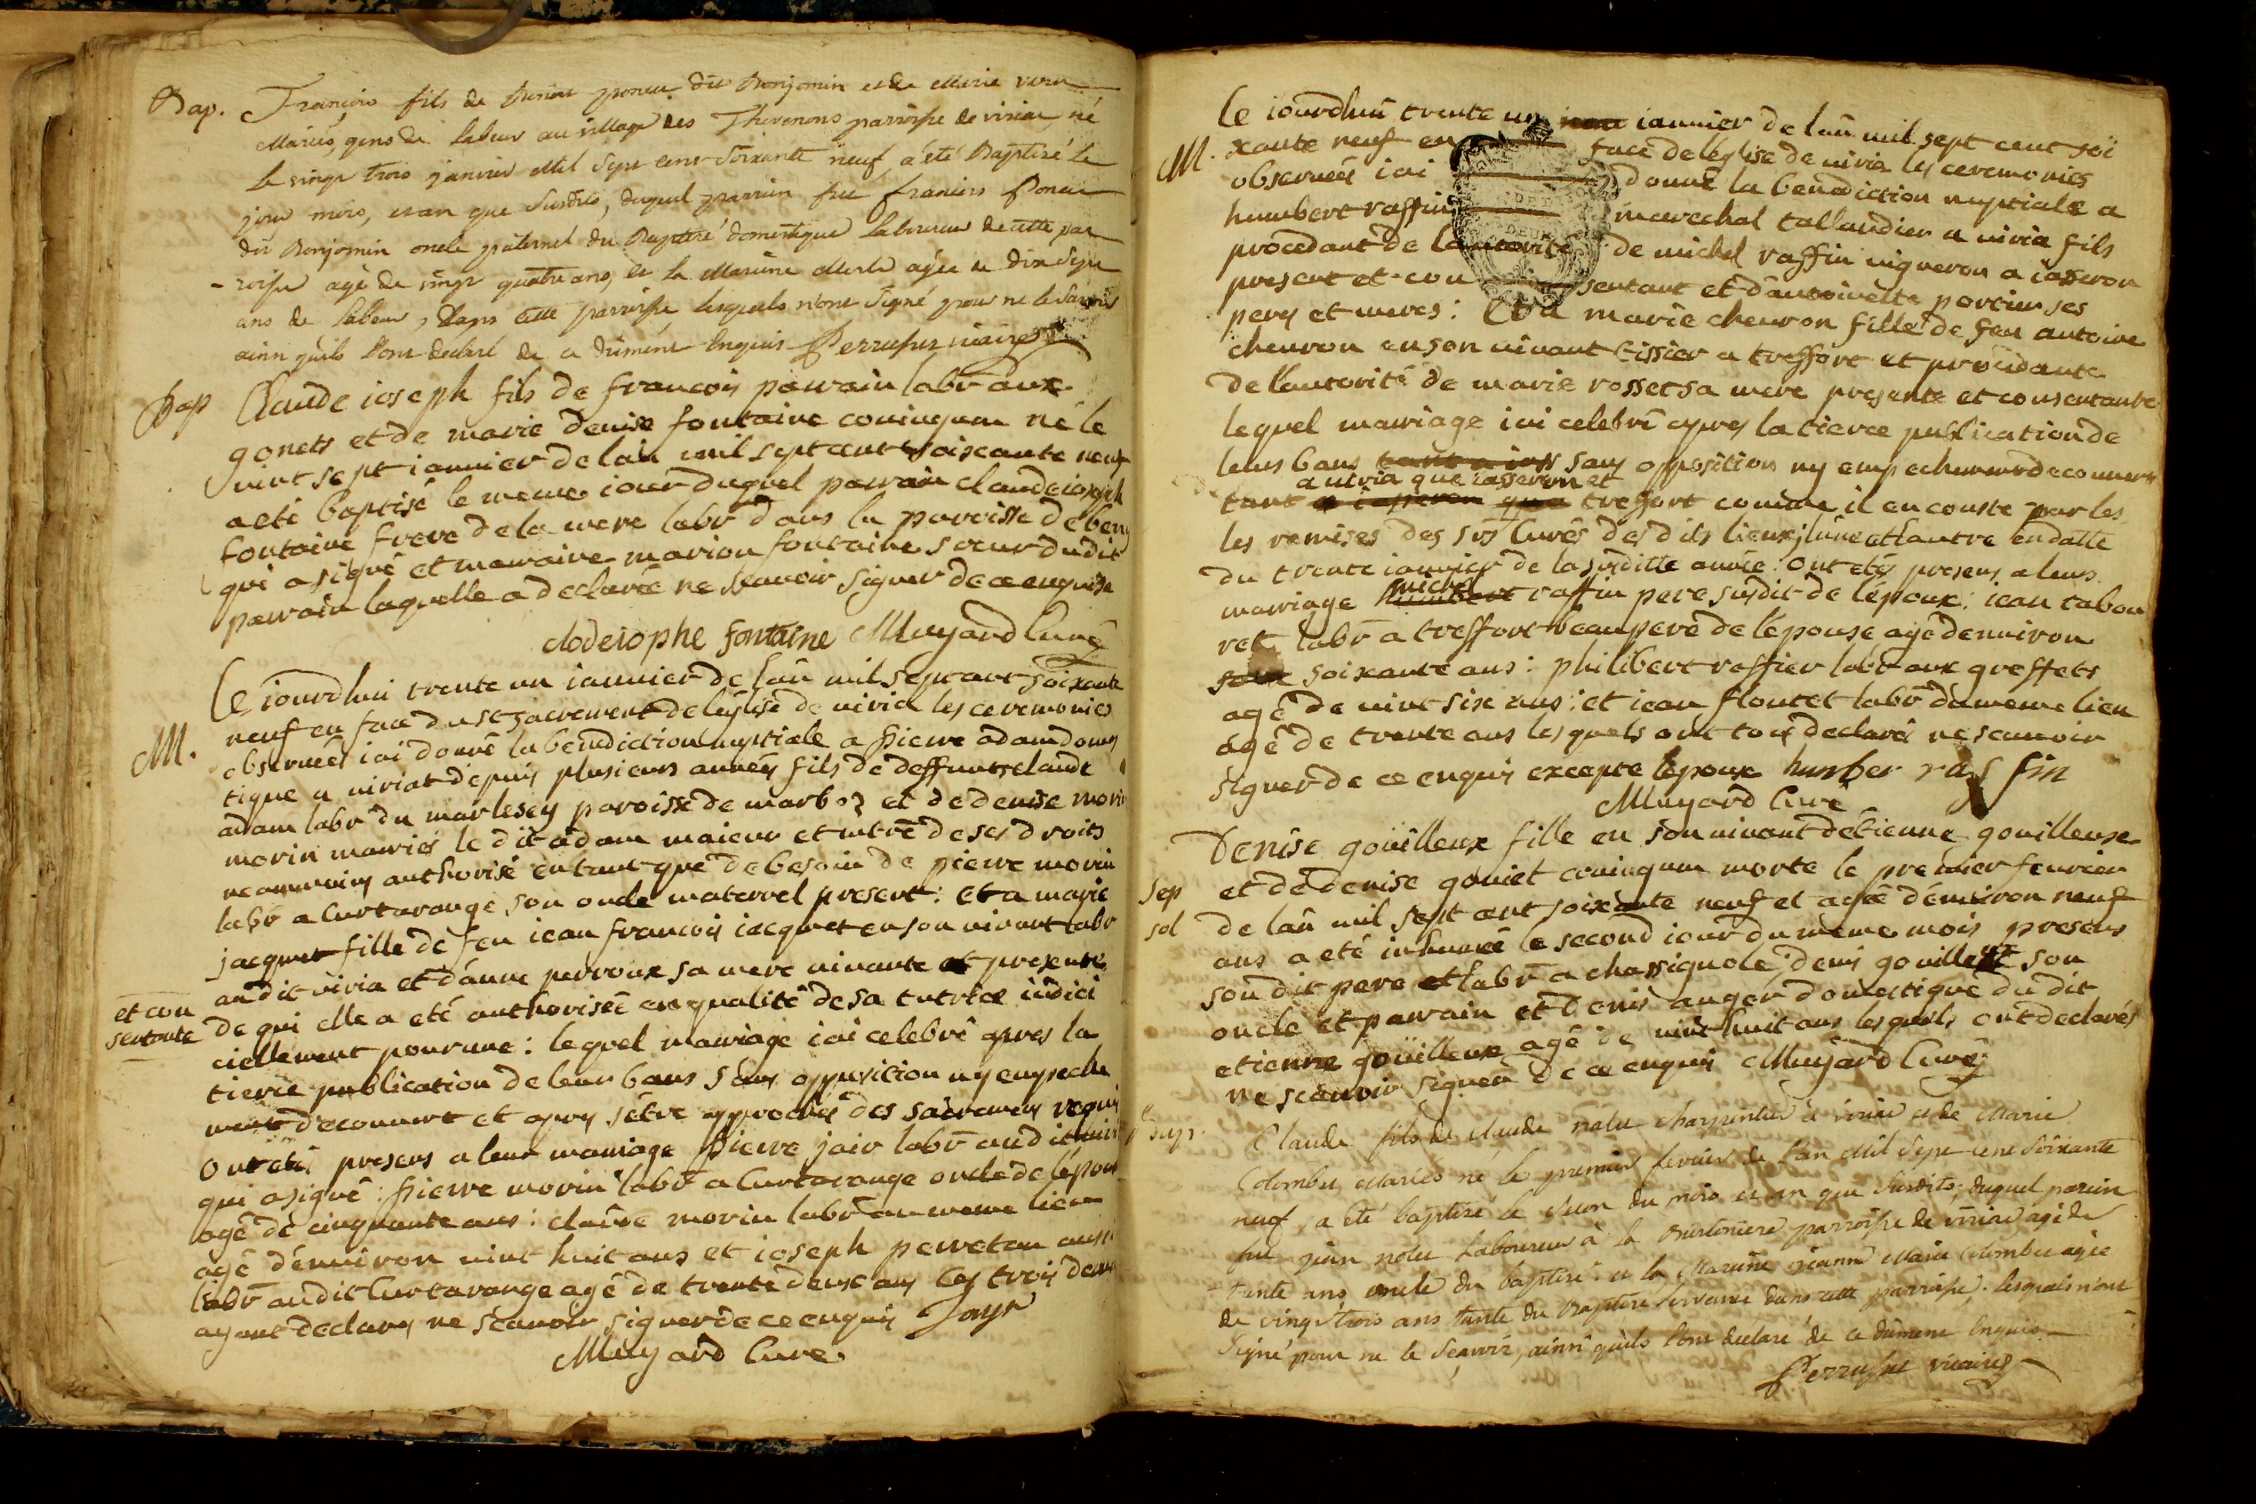 Bap. François fils de Benoit poncin dit Bonjomin et de Marie
Mariés, gens de labeur au village des Thevenons parroisse de viriat, né
le vingt trois janvier Mil sept cent Soixante neuf a été Baptisé le
jour mois, et an que Susdits, duquel parrain fut francois
dit Bonjomin oncle paternel du Baptisé domestique laboureur de cette par
-roisse agé de vingt quatre ans, et la Maraine agée de dix sept
ans de labeur, dans cette parroisse lesquels n'ont Signé pour ne le Savoir
ainsi qu'ils l'ont declaré de ce dument Enquis vicaire
Bap Claude ioseph fils de francois parrain labr aux
gonets et de marie denise fontaine coniugum né le
vint sept ianvier de lan mil sept cent soixante neuf
a eté baptisé le meme iour duquel parrain claude ioseph
fontaine frere de la mere labr dans la paroisse de beny
qui a signé et maraine marion fontaine soeur dudit
parrain laquelle a declarée ne scavoir signer de ce enquise
clodeiophe fontaine Muyard Curé
Le iourdhui trente un ianvier de lan mil sept cent soixante
neuf en face du st sacrement de léglise de viria les ceremonies
M. observées iai donné la bénédiction nuptiale a pierre adam domes
tique a viriat dépuis plusieurs années fils de deffunt claude
adam labr du marlesey paroisse de marboz et de denise morin
morin mariés le dit adam maieur et mtre de ses droits
neanmoins authorisé entant que de besoin de pierre morin
labr a Curtarange son oncle maternel present: et a marie
jacquet fille de feu iean francois iacquet en son vivant labr
audit viria et danne perroux sa mere vivante et presente
et con
sentante
de qui elle a eté authorisée en qualité de sa tutrice iudici
ciellement pour une: lequel mariage iai celebré apres la
tierce publication de leur bans sans opposition ny empeche
ment decouvert et apres sétre approchés des sacremens requis
Ont etés presens a leur mariage pierre jair labr audit viria
qui a signé: pierre morin labr a Curtarange oncle de lépoux
agé de cinquante ans: claude morin labr au meme lieu
agé denviron vint huit ans et ioseph perretan aussi
labr audit Curtarange agé de trente deux ans Les trois derniers
ayant declarés ne scavoir signer de ce enquis Jayr
Muyard Cure
Le iourdhui trente un ianvier de lan mil sept cent soi
M. xante neuf en face de léglise de viria les ceremonies
observées iai donné la benediction nuptiale a
humbert raffin marechal tallandier a viria fils
procedant de lautorité de michel raffin vigneron a iasseron
present et consentant et dantoinette portier ses
peres et meres: Et a marie chevron fille de feu antoine
chevron en son vivant tissier a treffort et procedante
de l'autorité de marie rosset sa mere presente et consentante
lequel mariage iai celebré apres la tierce publication de
leurs bans sans opposition ny empechement decouvert
a viria que iasseron et
tant treffort comme il en conste par les
les remises des srs Curés desdits lieux, lúne et lautre en datte
du trente ianvier de la susditte année. Ont etés presens a leur
michel
mariage raffin pere susdit de lépoux: iean tabou
ret labr a treffort beau pere de lépouse agé denviron
soixante ans: philibert raffier labr aux greffets
agé de vint six ans: et iean floutet labr du meme lieu
agé de trente ans lesquels ont tous declarés ne scavoir
signer de ce enquis excepte lépoux humber raffin
Muyard Curé
Denise goüilleux fille en son vivant détienne gouilleux
Sep
sol
et de denise goniet coniugum morte le premier fevrier
de lan mil sept cent soixante neuf et agée denviron neuf
ans a eté inhumée le second iour du meme mois presens
son dit pere et labr a chassignole: denis gouilleux son
oncle et parrain et denis auger domestique du dit
etienne goüilleux agé de vint huit ans lesquels ont declarés
ne scavoir signer de ce enquis Muyard Curé
Bap. Claude fils de claude nalet charpentier a viriat et de Marie
Colombet Mariés né le premier fevrier de l'an Mil Sept cent Soixante
neuf, a été baptisé le du mois et an que Susdits, duquel parrain
fut jean nalet Laboureur à la parroisse de viriat agé de
trente ans oncle du baptisé et la Maraine jeanne Marie Colombet agée
de vingt trois ans tante du Baptisé servante dans cette parroisse. lesquels n'ont
Signé pour ne le Sçavoir, ainsi qu'ils l'ont declaré de ce dument Enquis
vicaire